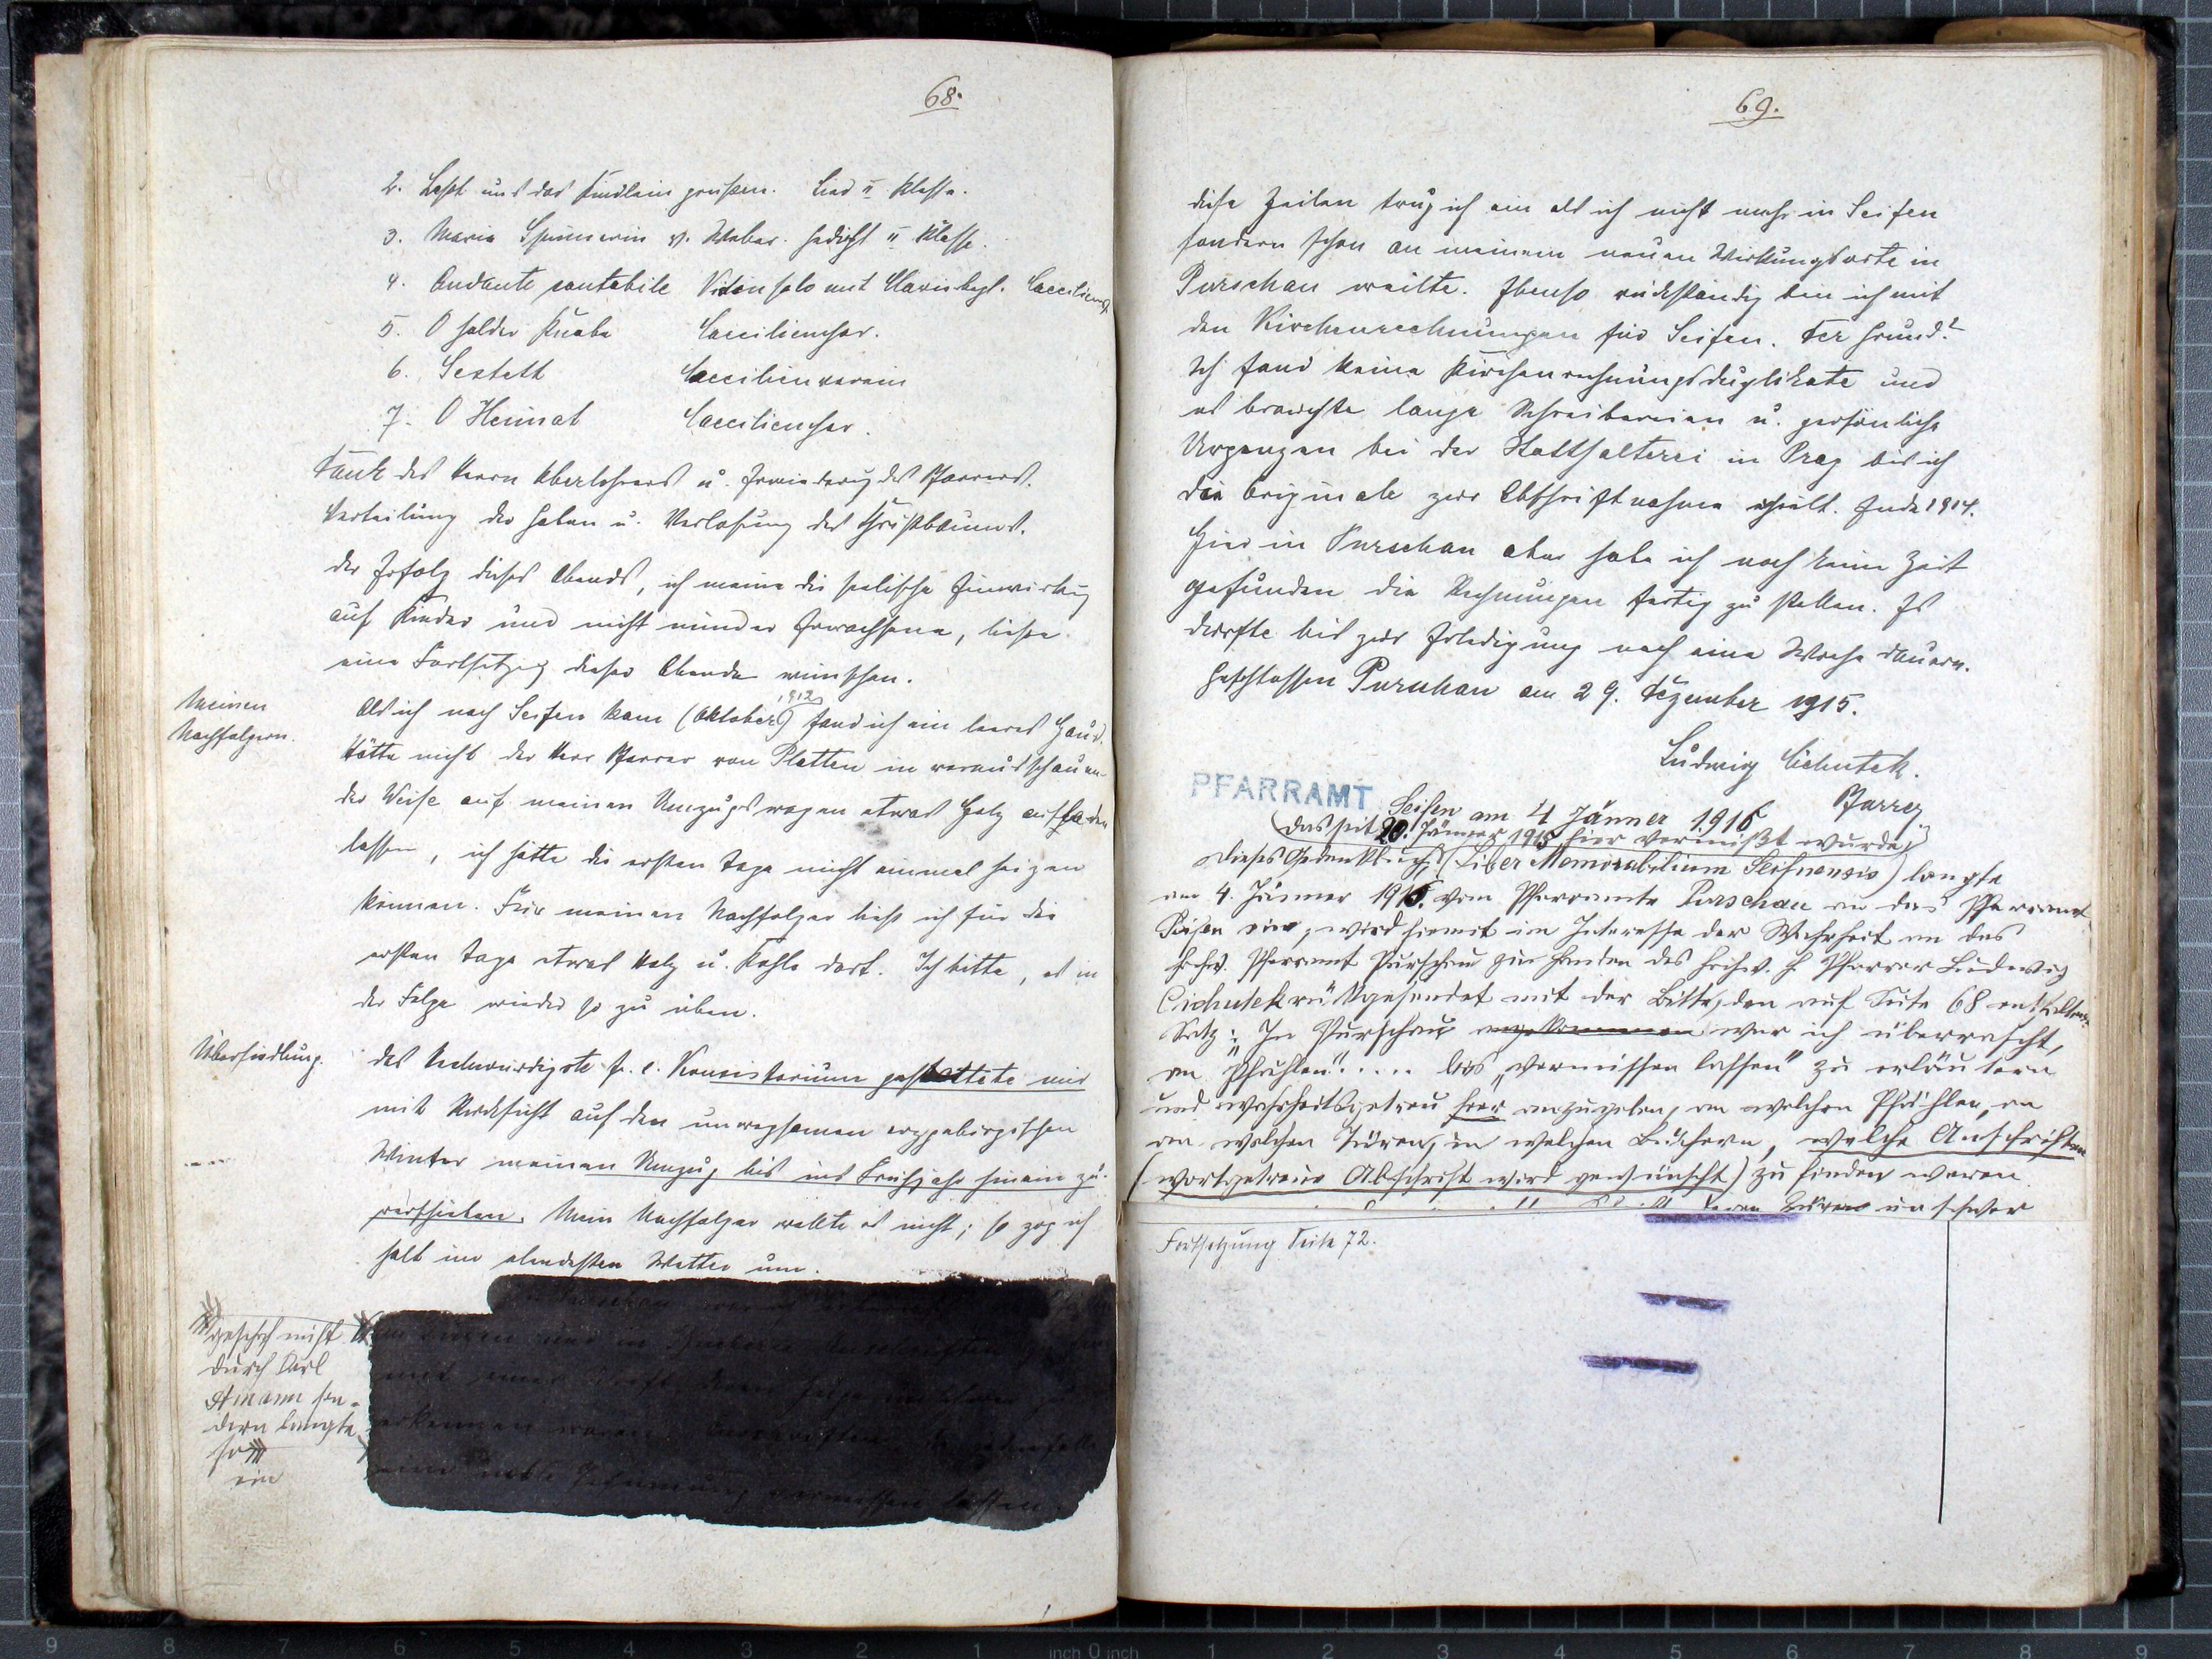 68.
2. Laßt uns das Kindlein grüßen. Lied II Klasse.
3. Maria Spinnerin v. Weber. Gedicht II Klasse.
4. Andante cantabile Violinsolo mit Clavierbegl. Caecilienchor
5. O holder Knabe Caecilienchor.
6. Sextett Caecilienverein
7. O Heimat Caecilienchor.
Dank des Herrn Oberlehrers u. Erwiderung des Pfarrers.
Verteilung der Gaben u. Verlosung des Christbaums.
Der Erfolg dieses Abends, ich meine die seelische Einwirkung
auf Kinder und nicht minder Erwachsene, ließe
eine Fortsetzung dieser Abende wünschen.
Meinen
Nachfolgern.
Als ich nach Seifen kam (Oktober 1912) fand ich ein leeres Haus.
Hätte nicht der Herr Pfarrer von Platten in vorausschauen-
der Weise auf meinen Umzugswagen etwas Holz aufladen
lassen, ich hätte die ersten Tage nicht einmal heizen
können. Für meinen Nachfolger ließ ich für die
ersten Tage etwas Holz u. Kohle dort. Ich bitte, es in
der Folge wieder so zu üben.
Übersiedlung.
Das Hochwürdigste f. e. Konsistorium gestattete mir
mit Rücksicht auf den unwegsamen erzgebirgischen
Winter meinen Umzug bis ins Frühjahr hinein zu
verschieben. Mein Nachfolger wollte es nicht; so zog ich
halt im elendesten Wetter um.
geschah nicht
durch Carl
Amann son-
dern langte
so
ein
Türen und in Anschriften
mit einer
erkennen waren. Anschriften jedenfalls
eine Gesinnung vermissen lassen.
69.
Diese Zeilen trug ich ein als ich nicht mehr in Seifen
sondern schon an meinem neuen Wirkungsorte in
Purschau weilte. Ebenso rückständig bin ich mit
den Kirchenrechnungen für Seifen. Der Grund?
Ich fand keine Kirchenrechnungsduplikate und
es brauchte lange Schreibereien u. persönliche
Urgenzen bei der Statthalterei in Prag bis ich
die Originale zur Abschriftnahme erhielt. Ende 1914.
Hier in Purschau aber habe ich noch keine Zeit
gefunden die Rechnungen fertig zu stellen. Es
dürfte bis zur Erledigung noch eine Woche dauern.
Geschlossen Purschau am 29. Dezember 1915.
Ludwig Cichutek.
Pfarrer
PFARRAMT Seifen am 4 Jänner 1916
(das seit 20. Jänner 1915 hier vermißt wurde)
Dieses Gedenkbuch, (Liber Memorabilium Seifnensis) langte
am 4. Jänner 1916. vom Pfarramte Purschau an das Pfarramt
Seifen ein, wird hiemit im Interesse der Wahrheit an das
hochw. Pfarramt Purschau zu Handen des hochw. H. Pfarrer Ludwig
Cichutek rückgesendet mit der Bitte, den auf Seite 68 enthaltenen
Satz: „In Purschau angekommen war ich überrascht,
an Pfählen"..... bis „vermissen lassen" zu erläutern
und wahrheitsgetreu hier anzugeben, an welchen Pfählen, an
an welchen Türen, in welchen Büchern, welche Anschriften
(wortgetreue Abschrift wird gewünscht) zu finden waren.
Türen unschwer
Fortsetzung Seite 72.
9 8 7 6 5 4 3 2 1 inch 0 inch 1 2 3 4 5 6 7 8 9